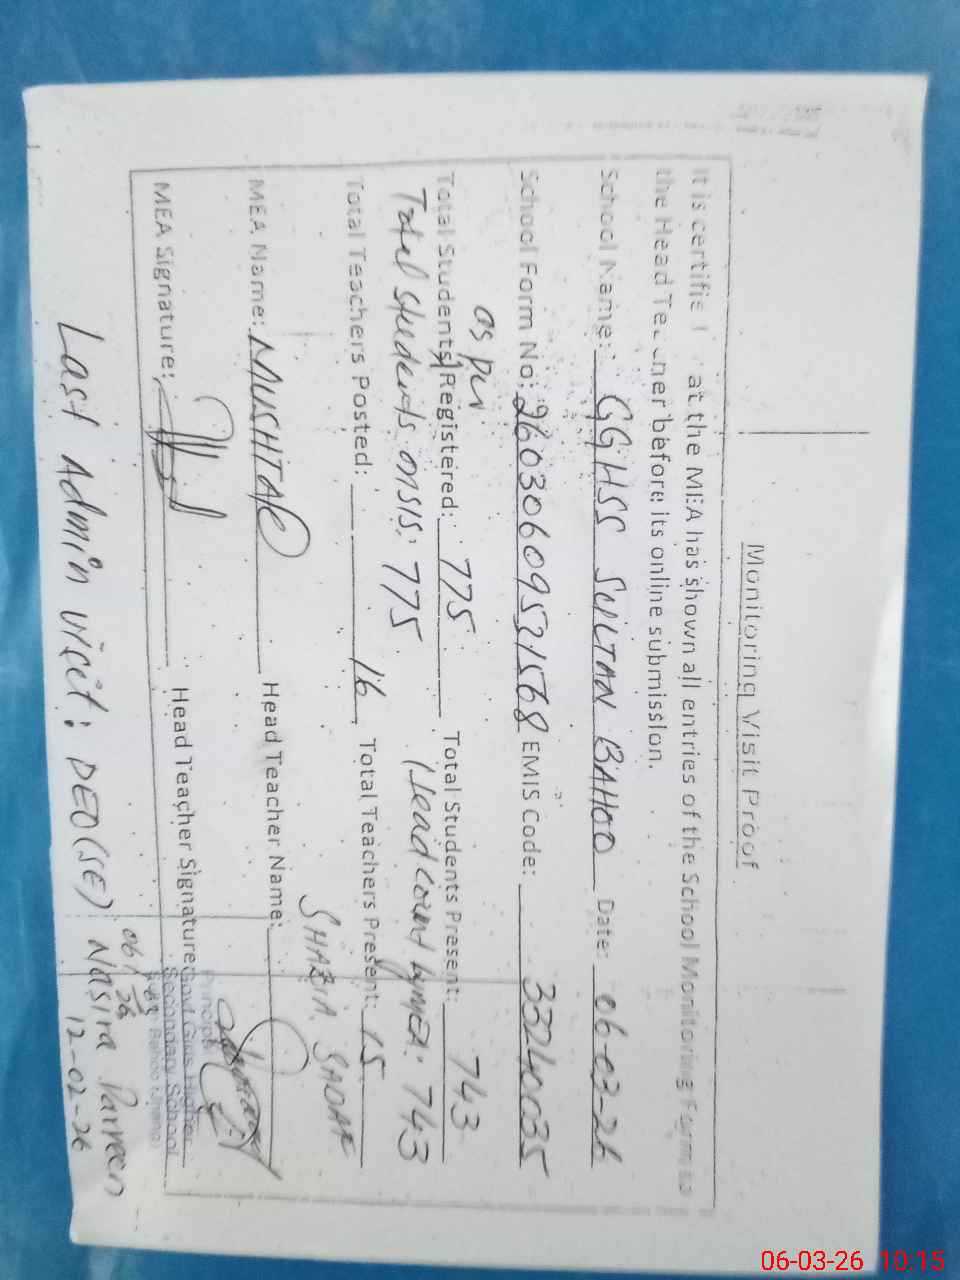 Monitoring Visit Proof
It is certifie at the MEA has shown all entries of the School Monitoring Form to
the Head Te ner before its online submission.
School Name: GGHSS SULTAN BAHOO Date: 06-03-26
School Form No: 26030609521568 EMIS Code: 33240035
as per
Total Students Registered: 775 Total Students Present: 743
Total students on SIS: 775 Head count by MEA: 743
Total Teachers Posted: 16 Total Teachers Present: 15
SHAZIA SADAF
MEA Name: MUSHTAQ Head Teacher Name:
MEA Signature: Head Teacher Signature:
Principal
Govt Girls Higher
Secondary School
Bahoo
Last Admin visit: DEO(SE) Nasira Parveen
12-02-26
06-03-26 10:15